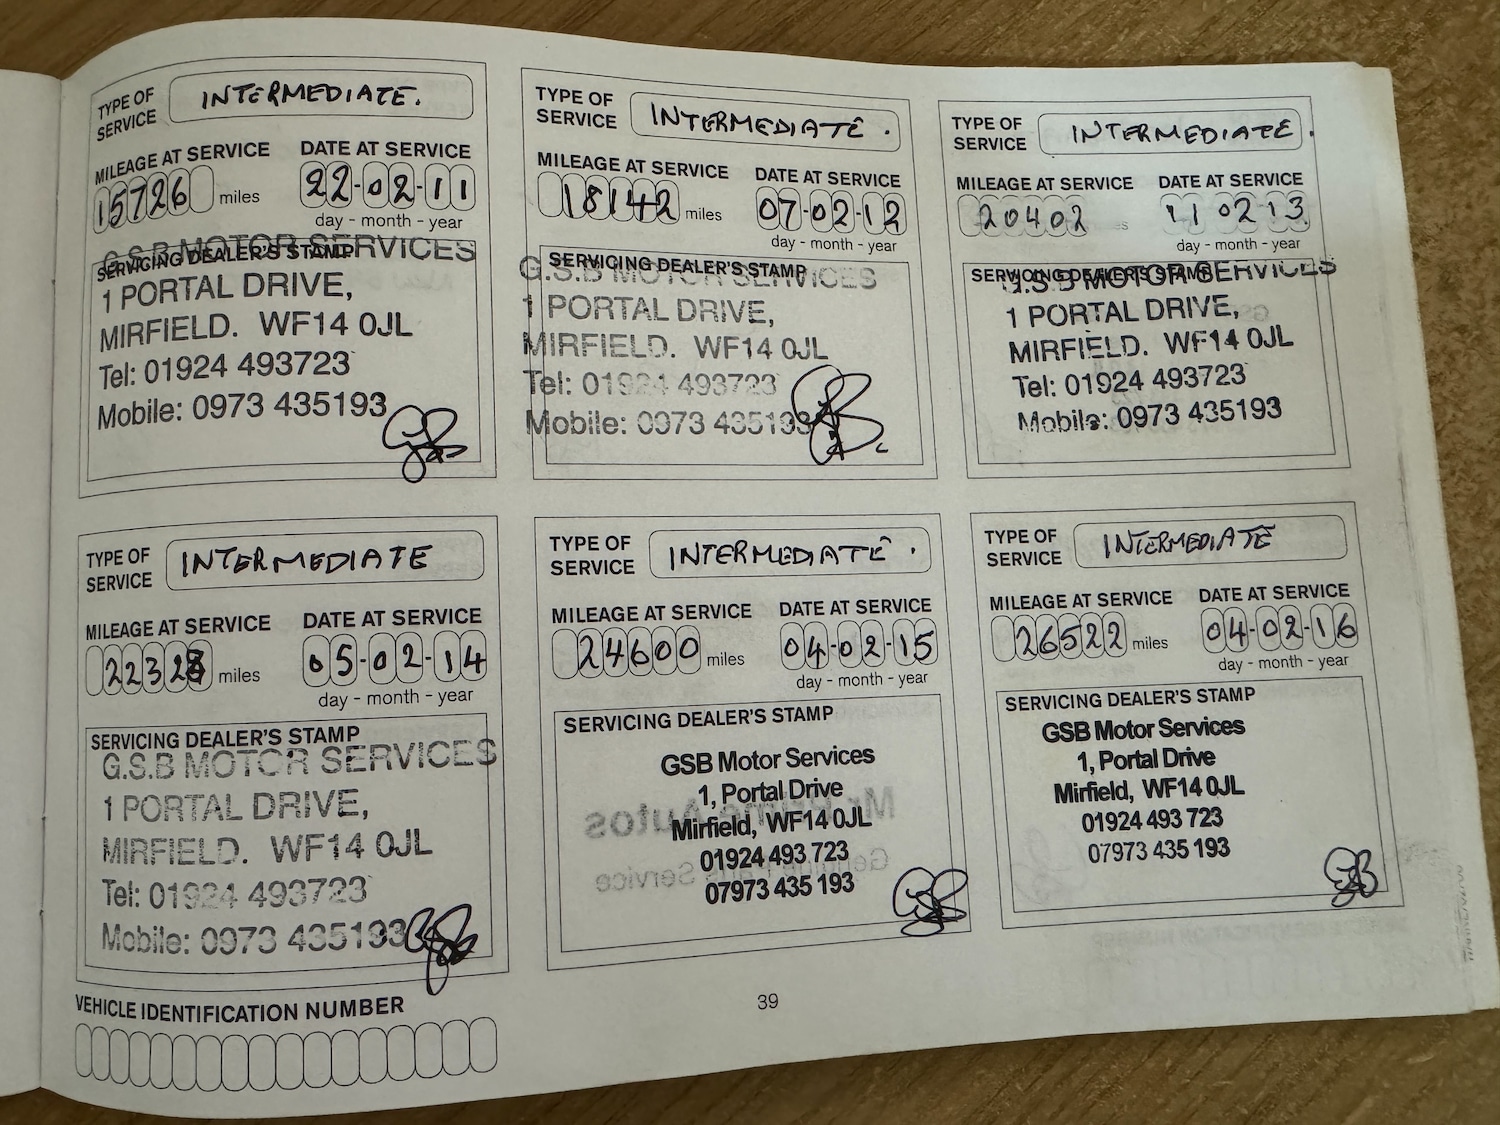 TYPE OF SERVICE INTERMEDIATE.
MILEAGE AT SERVICE
15726 miles
DATE AT SERVICE
22-02-11
day - month - year
SERVICING DEALER'S STAMP
G.S.B MOTOR SERVICES
1 PORTAL DRIVE,
MIRFIELD. WF14 0JL
Tel: 01924 493723
Mobile: 0973 435193
TYPE OF SERVICE INTERMEDIATE.
MILEAGE AT SERVICE
18142 miles
DATE AT SERVICE
07-02-12
day - month - year
SERVICING DEALER'S STAMP
G.S.B MOTOR SERVICES
1 PORTAL DRIVE,
MIRFIELD. WF14 0JL
Tel: 01924 493723
Mobile: 0973 435193
TYPE OF SERVICE INTERMEDIATE.
MILEAGE AT SERVICE
20402
DATE AT SERVICE
11 02 13
day - month - year
SERVICING DEALER'S STAMP
G.S.B MOTOR SERVICES
1 PORTAL DRIVE,
MIRFIELD. WF14 0JL
Tel: 01924 493723
Mobile: 0973 435193
TYPE OF SERVICE INTERMEDIATE
MILEAGE AT SERVICE
miles
DATE AT SERVICE
05-02-14
day - month - year
SERVICING DEALER'S STAMP
G.S.B MOTOR SERVICES
1 PORTAL DRIVE,
MIRFIELD. WF14 0JL
Tel: 01924 493723
Mobile: 0973 435193
TYPE OF SERVICE INTERMEDIATE.
MILEAGE AT SERVICE
24600 miles
DATE AT SERVICE
04-02-15
day - month - year
SERVICING DEALER'S STAMP
GSB Motor Services
1, Portal Drive
Mirfield, WF14 0JL
01924 493 723
07973 435 193
TYPE OF SERVICE INTERMEDIATE
MILEAGE AT SERVICE
26522 miles
DATE AT SERVICE
04-02-16
day - month - year
SERVICING DEALER'S STAMP
GSB Motor Services
1, Portal Drive
Mirfield, WF14 0JL
01924 493 723
07973 435 193
VEHICLE IDENTIFICATION NUMBER
39